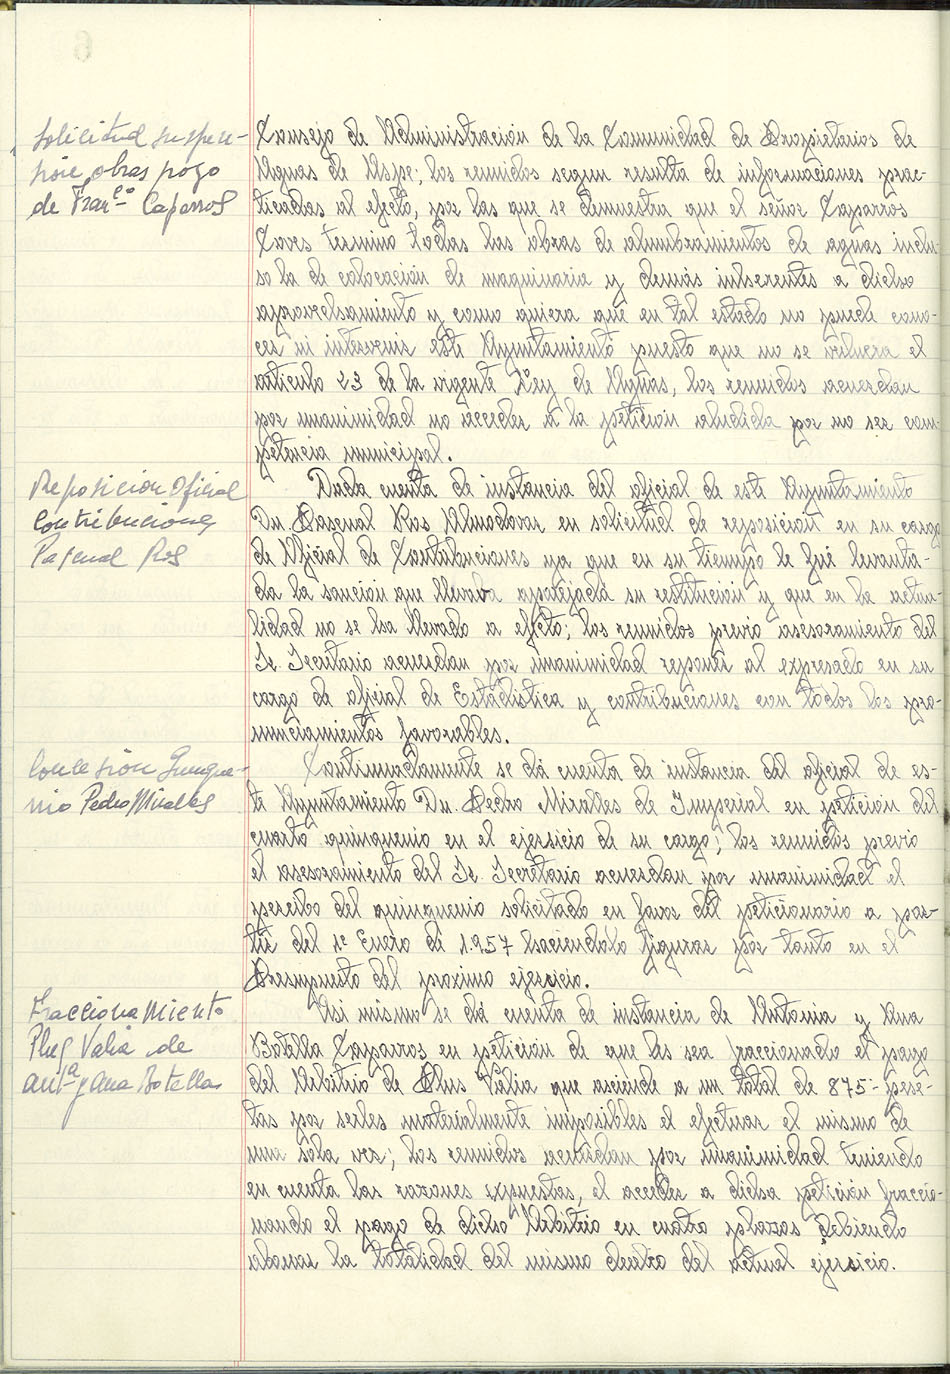 Solicitud suspen-
sión obras pozo
de Franco Caparros
Consejo de Administración de la Comunidad de Propietarios de
Aguas de Aspe; los reunidos segun resulta de informaciones prac-
ticadas al efecto, por las que se demuestra que el señor Caparros
Cores termino todas las obras de alumbramientos de aguas inclu-
so la de colocación de maquinaria y demás inherentes a dicho
aprovechamiento y como quiera que en tal estado no puede cono-
cer ni intervenir este Ayuntamiento puesto que no se vulnera el
articulo 23 de la vigente Ley de Aguas, los reunidos acuerdan
por unanimidad no acceder a la petición aludida por no ser com-
petencia municipal.
Reposición Oficial
Contribuciones
Pascual Ros
Dada cuenta de instancia del oficial de este Ayuntamiento
Dn. Pascual Ros Almodovar en solicitud de reposición en su cargo
de Oficial de Contribuciones ya que en su tiempo le fué levanta-
da la sanción que llevava aparejada su restitución y que en la actua-
lidad no se ha llevado a efecto; los reunidos previo asesoramiento del
Sr. Secretario acuerdan por unanimidad reponer al expresado en su
cargo de oficial de Estadistica y contribuciones con todos los pro-
nunciamientos favorables.
Concesión Quinque-
nio Pedro Miralles
Continuadamente se dá cuenta de instancia del oficial de es-
te Ayuntamiento Dn. Pedro Miralles de Imperial en petición del
cuarto quinquenio en el ejersicio de su cargo; los reunidos previo
el asesoramiento del Sr. Secretario acuerdan por unanimidad el
percibo del quinquenio solicitado en favor del peticionario a par-
tir del 1º Enero de 1.957 haciendolo figurar por tanto en el
Presupuesto del proximo ejersicio.
Fraccionamiento
Plus Valia de
Antª y Ana Botella
Asi mismo se dá cuenta de instancia de Antonia y Ana
Botella Caparros en petición de que les sea fraccionado el pago
del Arbitrio de Plus Valia que asciende a un total de 875'- pese-
tas por serles materialmente imposibles el efectuar el mismo de
una sola vez; los reunidos acuerdan por unanimidad teniendo
en cuenta las razones expuestas, el acceder a dicha petición fraccio-
nando el pago de dicho Arbitrio en cuatro plazos debiendo
abonar la totalidad del mismo dentro del actual ejersicio.